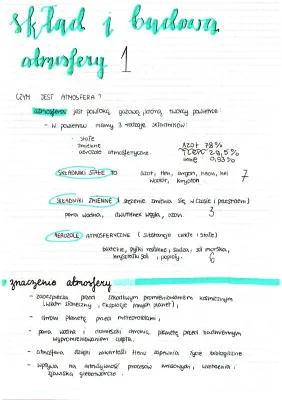 skład i budowa
atmosfery 1
CZYM JEST ATMOSFERA?
atmosfera jest powłoką gazową, którą tworzy powietrze:
- w powietrzu mamy 3 rodzaje składników:
• stałe
zmienne
aerozole atmosferyczne.
AZOT 78%
TLEN 20,5%
inne 0,93%
SKŁADNIKI STAŁE to azot, tlen, argon, neon, hel 7
wodór, krypton
SKŁADNIKI ZMIENNE (stężenie zmienia się w czasie i przestrzeni)
para wodna, dwutlenek węgla, ozon. 3
AEROZOLE ATMOSFERYCZNE (substancje ciekłe i stałe)
bakterie, pyłki roślinne, sadza, sól morska,
kryształki soli, popioły. 6
znaczenie atmosfery
- zabezpiecza przed szkodliwym promieniowaniem kosmicznym
(wiatr słoneczny, eksplozje innych planet);
- chroni planetę przed meteoroidami;
- para wodna i chroni planetę przed nadmiernym
wypromieniowaniem ciepła.
- atmosfera dzięki zawartości tlenu zapewnia życie biologiczne
- wpływa na intensywność procesów
zjawiska glebotwórcze.